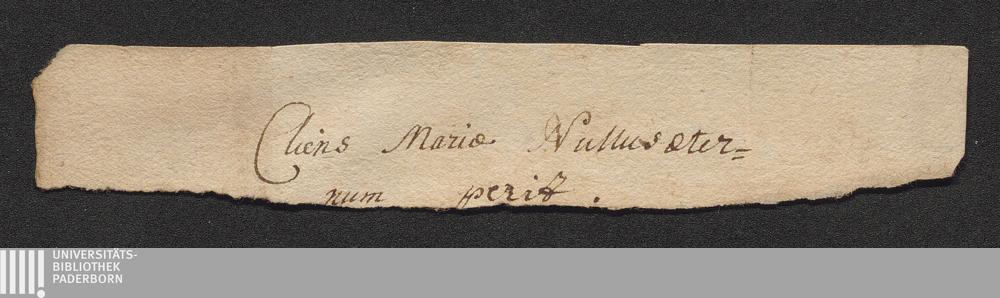 Cliens Mariæ Nullus æter=
num perit.
UNIVERSITÄTS-
BIBLIOTHEK
PADERBORN